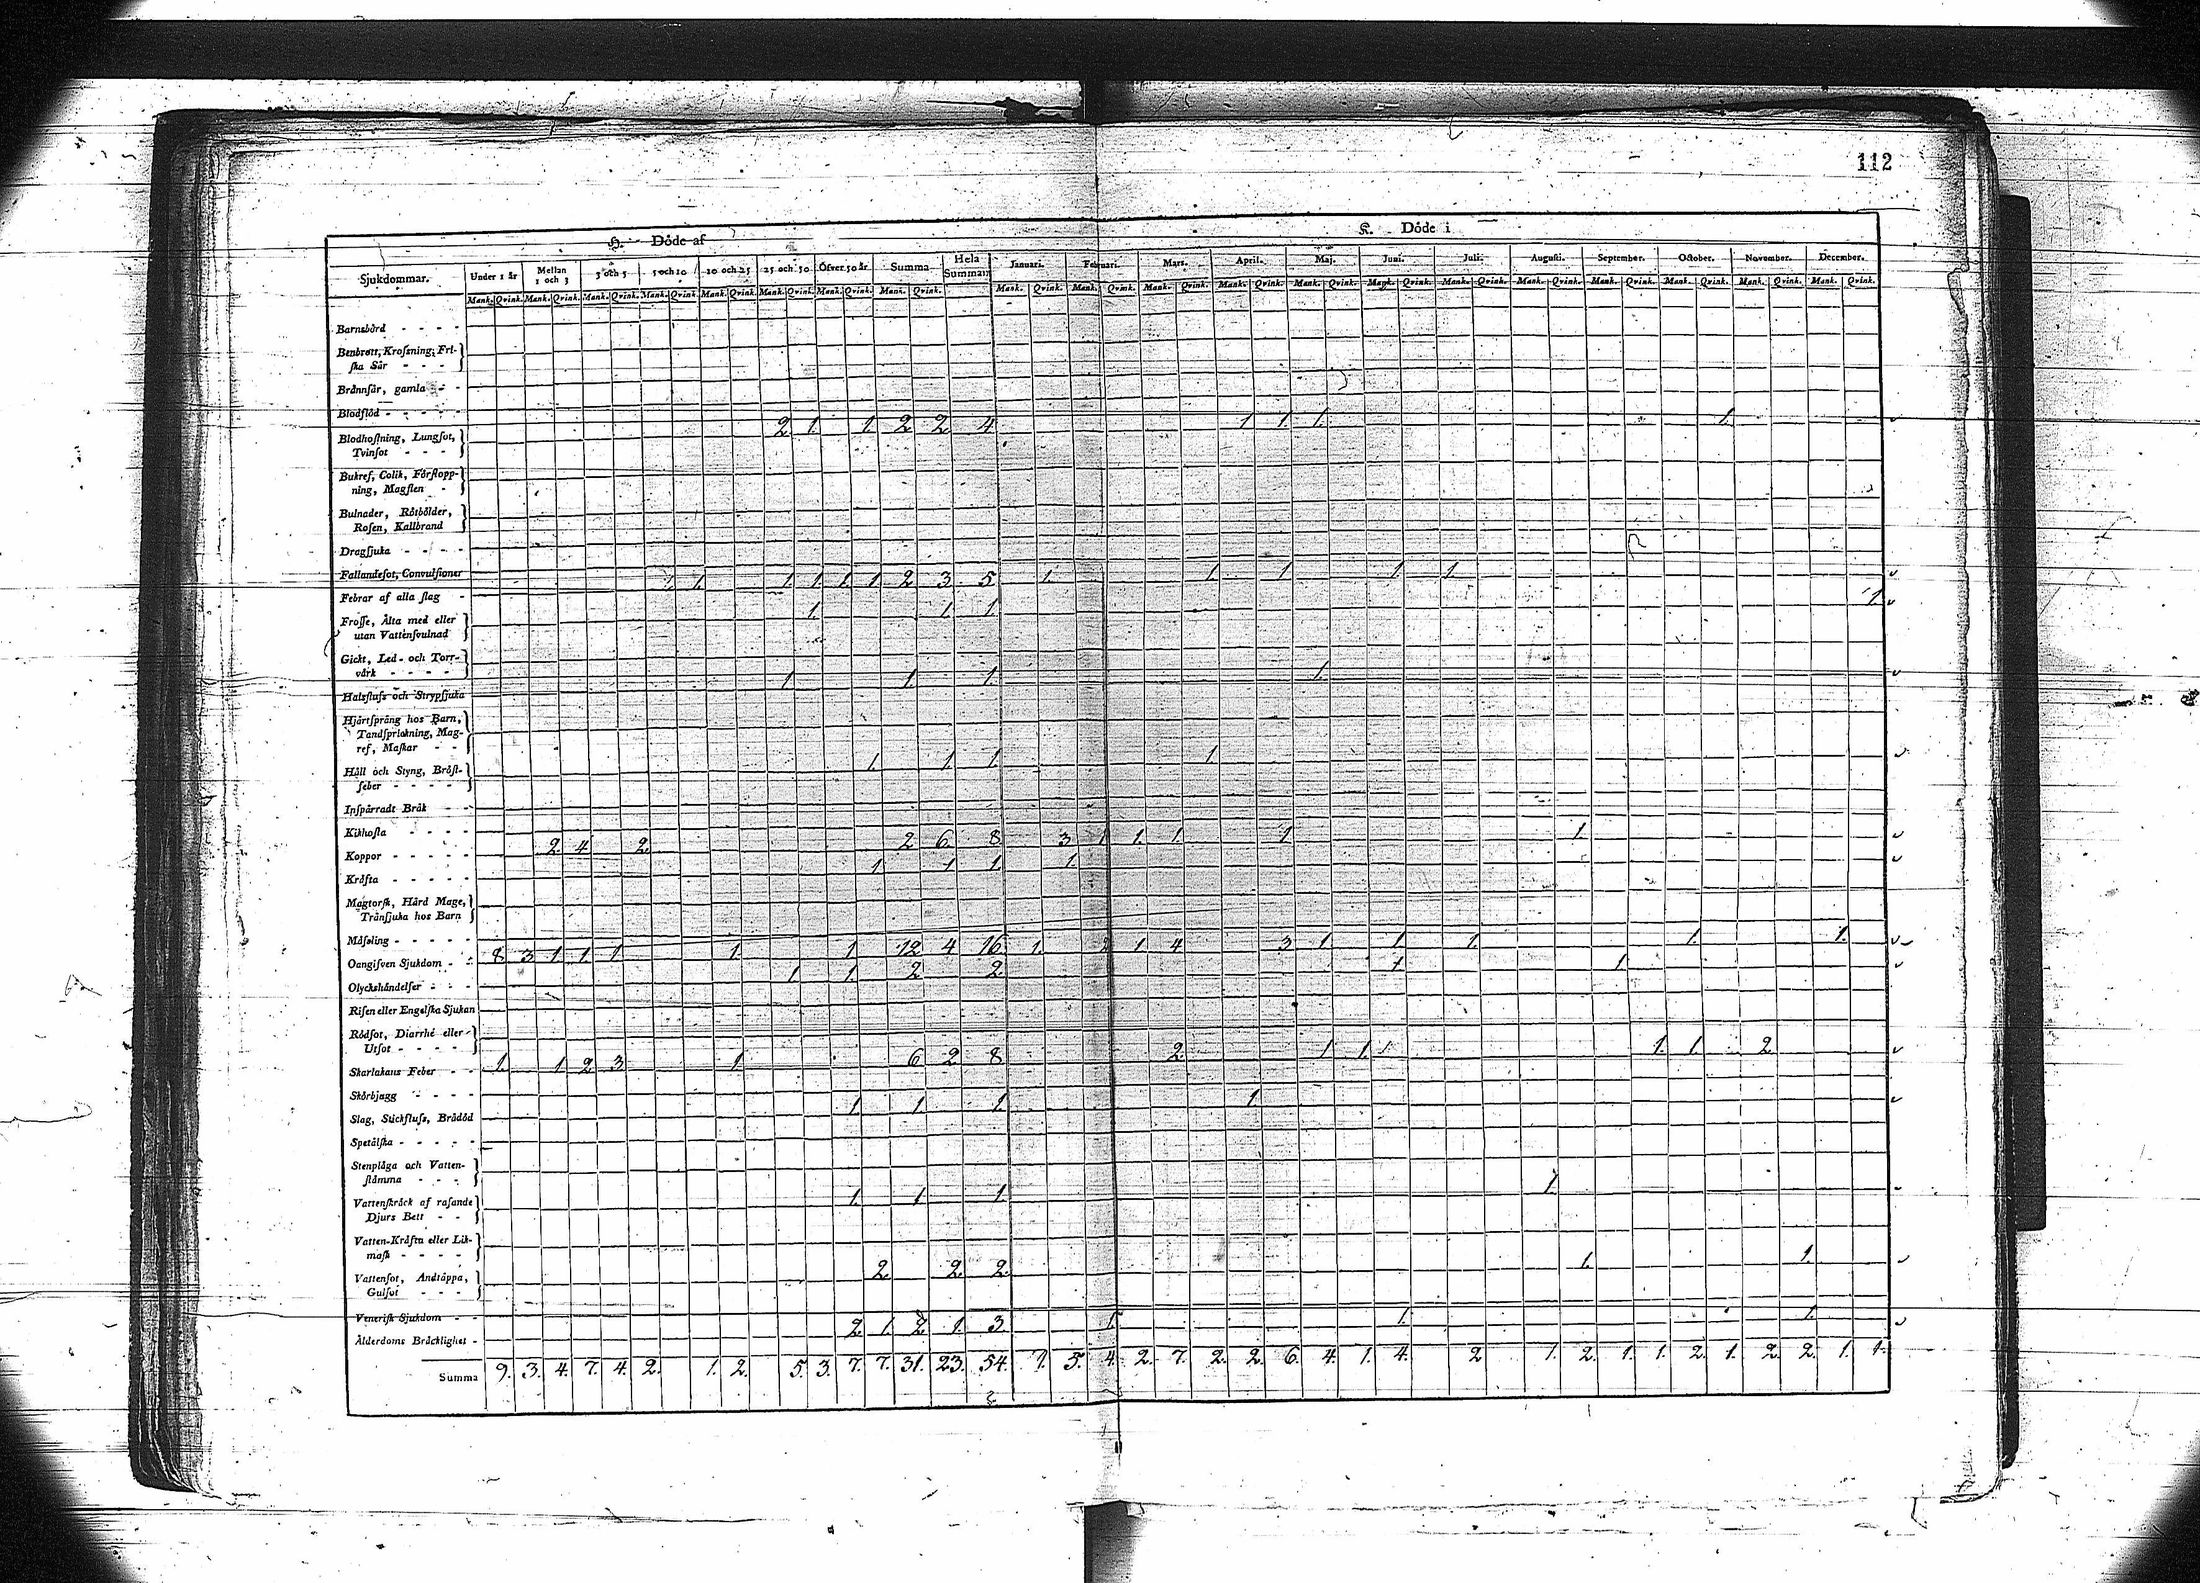 112
H. Döde af K. Döde i
Sjukdommar. Under 1 år Mellan 1 och 3 3 och 5 5 och 10 10 och 25 25 och 50 Öfver 50 år Summa Hela Summan Januari. Februari. Mars. April. Maj. Juni. Juli. Augusti. September. October. November. December.
Mank. Qvink. Mank. Qvink. Mank. Qvink. Mank. Qvink. Mank. Qvink. Mank. Qvink. Mank. Qvink. Mank. Qvink. Mank. Qvink. Mank. Qvink. Mank. Qvink. Mank. Qvink. Mank. Qvink. Mank. Qvink. Mank. Qvink. Mank. Qvink. Mank. Qvink. Mank. Qvink. Mank. Qvink. Mank. Qvink.
Barnsbörd - - - -
Benbrott, Krossning, Fri-
ska Sår - - -
Brännsår, gamla - -
Blodflöd - - - - -
2. 1. 1. 2. 2. 4. 1 1. 1. 1.
Blodhostning, Lungsot,
Tvinsot - - -
Bukref, Colik, Förstopp-
ning, Magsten -
Bulnader, Rötbölder,
Rosen, Kallbrand
Dragsjuka - - - -
Fallandesot, Convulsioner
1. 1. 1. 1. 1. 1 2. 3. 5. 1. 1. 1. 1. 1.
Febrar af alla slag -
1. 1 1. 1.
Frosse, Älta med eller
utan Vattensvulnad
Gickt, Led- och Torr-
värk - - - - -
1. 1. 1. 1.
Halsfluss och Strypsjuka
Hjärtsprång hos Barn,
Tandsprickning, Mag-
ref, Maskar - -
1. 1. 1. 1.
Håll och Styng, Bröst-
feber - - - -
Inspärradt Bråk - -
Kikhosta - - - -
2. 4. 2. 2. 6. 8. 3. 1 1. 1. 1. 1.
Koppor - - - - -
1 1 1. 1.
Kräfta - - - - -
Magtorsk, Hård Mage,
Transjuka hos Barn
Mässling - - - - -
8. 3. 1 1. 1. 1. 1. 12 4 16. 1. 1. 4. 3. 1. 1. 1. 1. 1.
Oangifven Sjukdom - -
1. 1. 2. 2. 1 1.
Olyckshändelser - - -
Risen eller Engelska Sjukan
Rödsot, Diarrhé eller
Utsot - - - -
1. 1 2. 3. 1. 6 2. 8. 2. 1 1. 1 1. 1. 2.
Skarlakans Feber - -
Skörbjugg - - - -
1. 1. 1. 1.
Slag, Stickfluss, Brådöd
Spetälska - - - - -
Stenplåga och Vatten-
stämma - - -
1. 1. 1. 1.
Vattenskräck af rasande
Djurs Bett - -
Vatten-Kräfta eller Lik-
mask - - - -
2. 2. 2. 1. 1.
Vattensot, Andtäppa,
Gulsot - - -
Venerisk Sjukdom - -
2. 1. 2. 1. 3. 1. 1. 1.
Ålderdoms Bräcklighet -
Summa 9. 3. 4. 7. 4. 2. 1. 2. 5. 3. 7. 7. 31. 23. 54. 1. 5. 4. 2. 7. 2. 2. 6. 4. 1. 4. 2 1. 2. 1. 1. 2. 1. 2. 2. 1. 1.